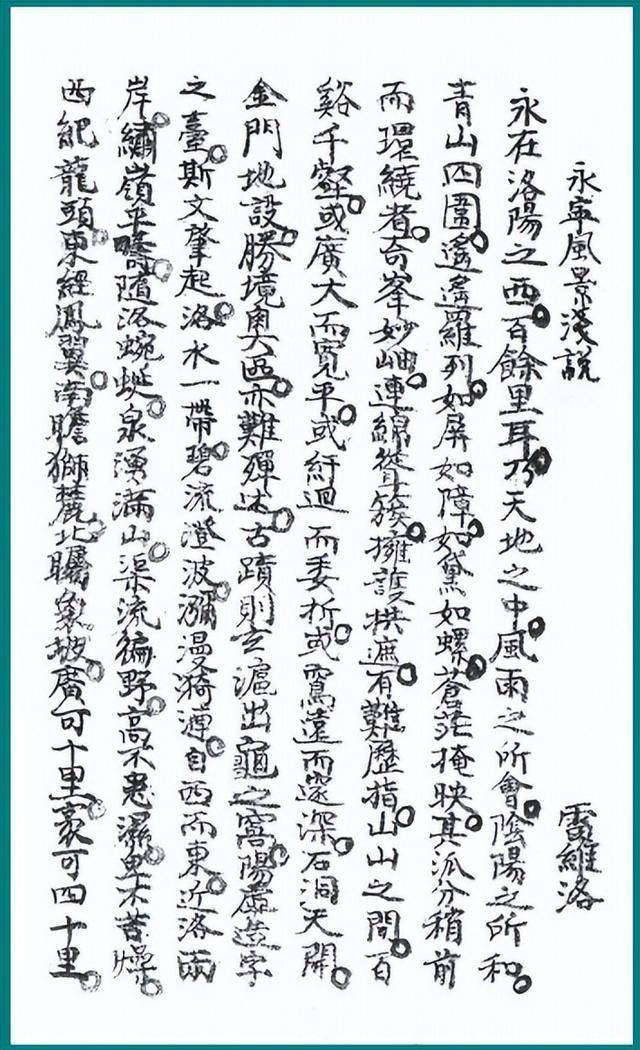 永寧風景淺説
雷維洛
永在洛陽之西。百餘里耳。乃天地之中。風雨之所會。陰陽之所和。
青山四圍。遙遙羅列。如屏如障。如黛如螺。蒼茫掩映。其派分稍前
而環繞者。奇峯妙岫。連綿聳簇。擁護拱遮。有難歷指。山山之間。百
谿千壑。或廣大而寬平。或紆迴而委折。或窵遠而邃深。石洞天開。
金門地設。勝境奧區。亦難殫述。古蹟則玄滬出龜之窩。陽虛造字
之臺。斯文肇起。洛水一帶。碧流澄波。瀰漫漪溥。自西而東。近洛兩
岸。繡嶺平疇。隨洛蜿蜒。泉湧滿山。渠流徧野。高不患濕。卑不苦燥。
西起龍頭。東經鳳翼。南瞻獅麓。北矚象坡。廣可十里。袤可四十里。